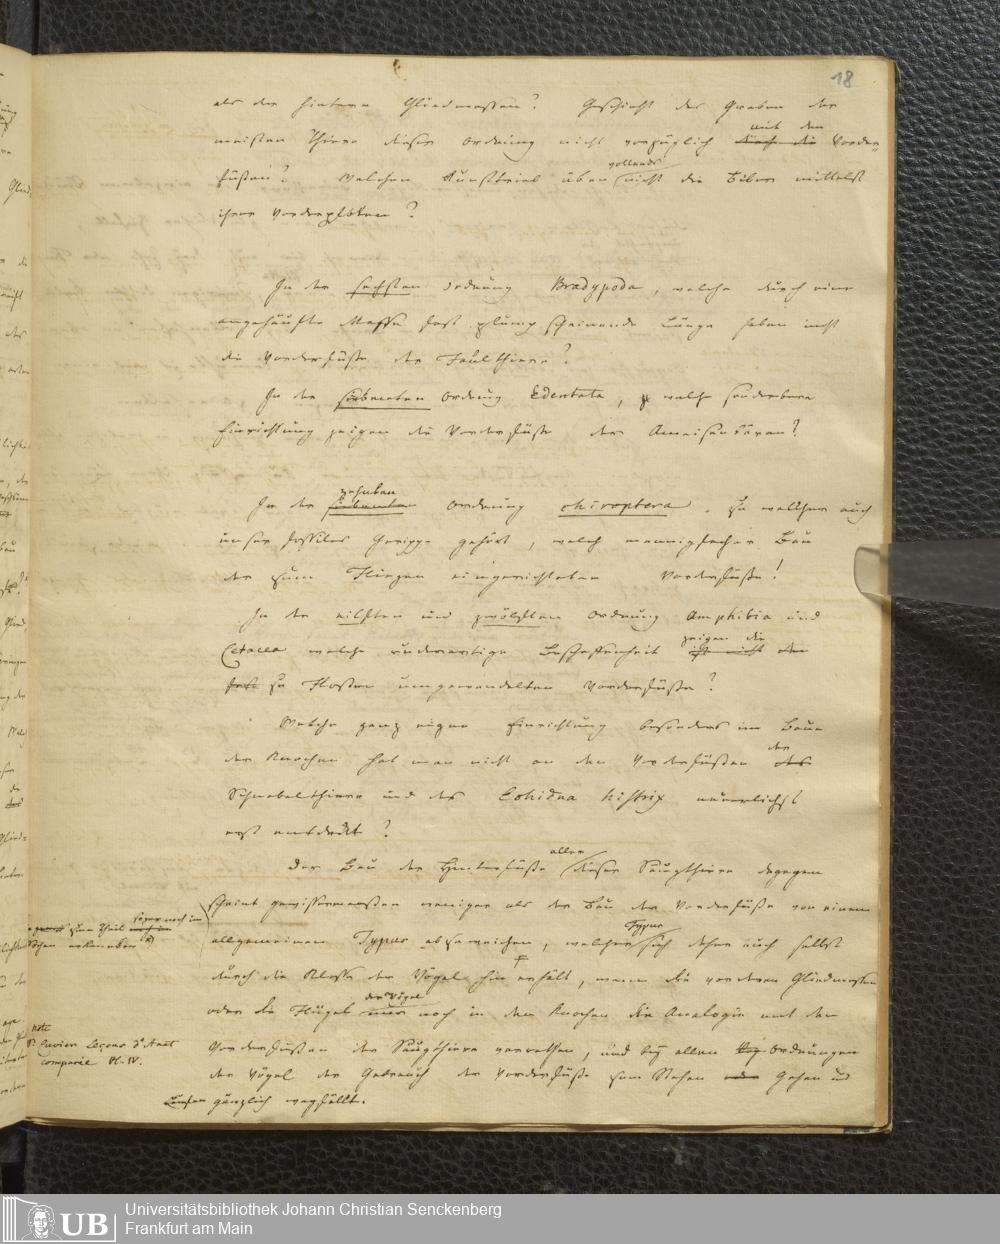 18
als der hintern Gliedmassen? Geschieht das Graben der
meisten Thiere dieser Ordnung nicht vorzüglich durch die mit den Vorder-
füßen? Welchen Kunsttrieb üben vollends nicht die Biber mittelst
ihrer Vorderpfoten?
In der sechsten Ordnung Bradypoda, welche durch eine
angehäufte Masse fast plump scheinende Länge haben nicht
die Vorderfüße der Faulthiere?
In der siebenten Ordnung Edentata, welche sonderbare
Einrichtung zeigen die Vorderfüße der Ameisenbären?
In der siebenten zehnten Ordnung chiroptera, zu welcher auch
unser fossiles Gerippe gehört, welch mannigfacher Bau
der zum Fliegen eingerichteten Vorderfüße!
In der eilften und zwölften Ordnung Amphibia und
Cetacea welche ruderartige Beschaffenheit ist nicht den zeigen die
fast zu Flossen umgewandelten Vorderfüße?
Welche ganz eigne Einrichtung besonders im Baue
der Knochen hat man nicht an den Vorderfüßen des der
Schnabelthiere und des Echidna histrix neuerlichst
erst entdeckt?
Der Bau der Hinterfüße aller dieser Säugthiere dagegen
scheint gewissermassen weniger als der Bau der Vorderfüße von einem
allgemeinen Typus abzuweichen, welcher Typus sich daher auch selbst
durch die Klasse der Vögel hin erhält, wenn die vorderen Gliedmassen
oder die Flügel der Vögel nur noch in den Knochen die Analogie mit den
Vorderfüßen der Säugthiere verrathen, und bey allen Ordnungen
der Vögel der Gebrauch der Vorderfüße zum Stehen oder Gehen und
Laufen gänzlich wegfällt.
zum Theil sogar noch im
Zehen erkennbar
Note
Cuvier Leçons d'Anat
comparée Pl. IV.
Universitätsbibliothek Johann Christian Senckenberg
Frankfurt am Main
UB